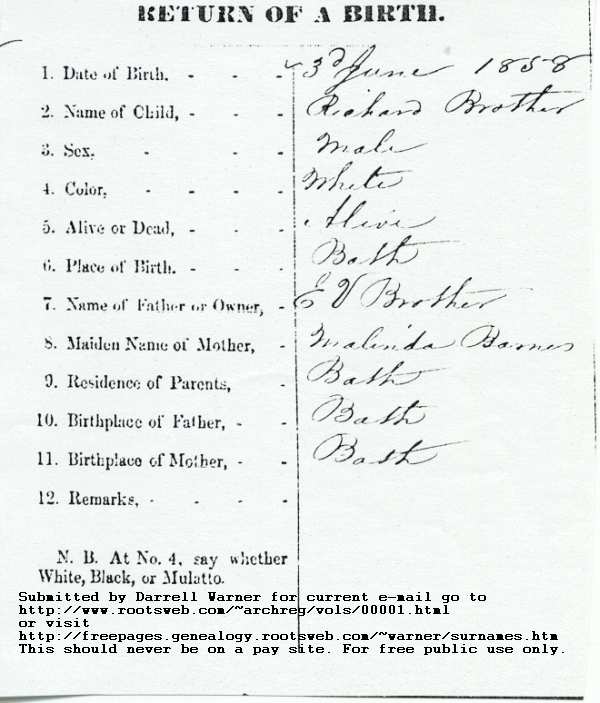 RETURN OF A BIRTH.
1. Date of Birth. - - - 3d June 1858
2. Name of Child, - - - Richard Brother
3. Sex, - - - Male
4. Color, - - - - White
5. Alive or Dead, - - - Alive
6. Place of Birth. - - - Bath
7. Name of Father or Owner, - E V Brother
8. Maiden Name of Mother, - Malinda Barnes
9. Residence of Parents, - Bath
10. Birthplace of Father, - - Bath
11. Birthplace of Mother, - - Bath
12. Remarks, - - - -
N. B. At No. 4, say whether
White, Black, or Mulatto.
Submitted by Darrell Warner for current e-mail go to
http://www.rootsweb.com/~archreg/vols/00001.html
or visit
http://freepages.genealogy.rootsweb.com/~warner/surnames.htm
This should never be on a pay site. For free public use only.